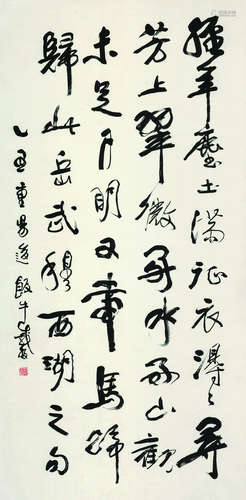 經年塵土滿征衣得〻尋
芳上翠微好水好山觀
未足月明又馬蹄
歸此岳武穆西湖之句
乙丑重易後飯牛